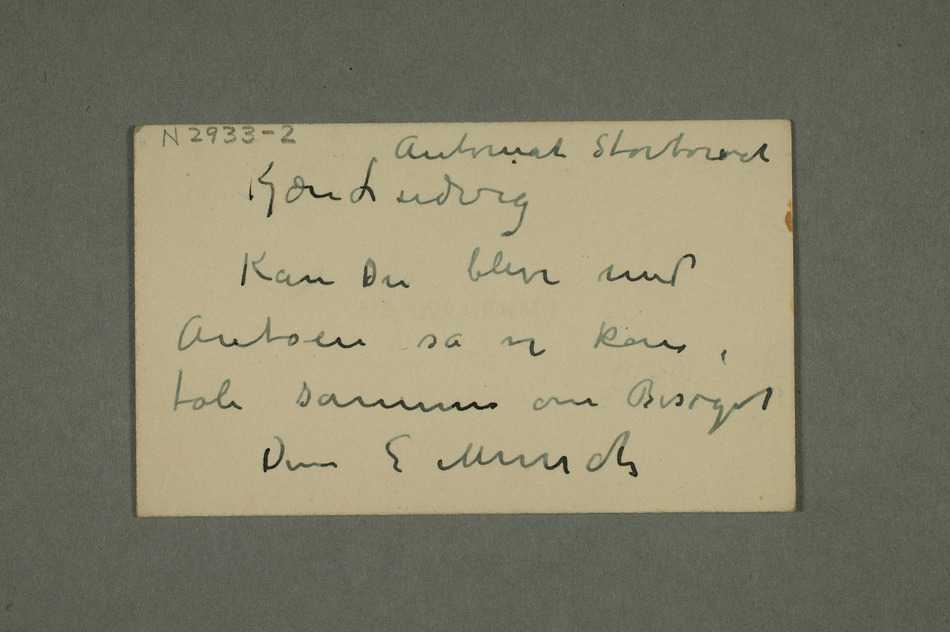 N 2933-2
Automat Stortorvet
Kjære Ludvig
Kan Du blive med
Autoen så vi kan
tale sammen om Besøget
Din E Munch